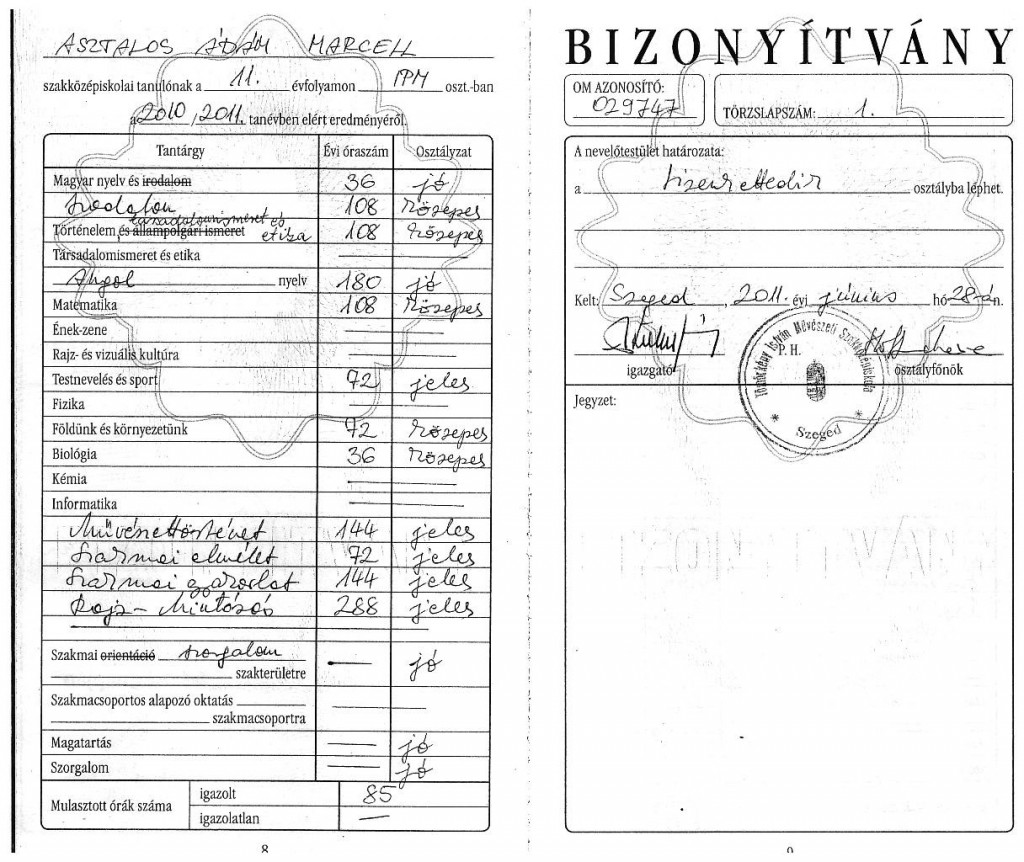 ASZTALOS ÁDÁM MARCELL
szakközépiskolai tanulónak a 11. évfolyamon IPM oszt.-ban
a 2010, 2011. tanévben elért eredményéről.
Tantárgy Évi óraszám Osztályzat
Magyar nyelv és irodalom 36 jó
Irodalom 108 közepes
társadalomismeret és
Történelem, és állampolgári ismeret etika 108 közepes
Társadalomismeret és etika
Angol nyelv 180 jó
Matematika 108 közepes
Ének-zene
Rajz- és vizuális kultúra
Testnevelés és sport 72 jeles
Fizika
Földünk és környezetünk 72 közepes
Biológia 36 közepes
Kémia
Informatika
Művészettörténet 144 jeles
Szakmai elmélet 72 jeles
Szakmai gyakorlat 144 jeles
Rajz - Mintázás 288 jeles
Szakmai orientáció szorgalom jó
szakterületre
Szakmacsoportos alapozó oktatás
szakmacsoportra
Magatartás jó
Szorgalom jó
Mulasztott órák száma
igazolt 85
igazolatlan —
8
BIZONYÍTVÁNY
OM AZONOSÍTÓ:
029747
TÖRZSLAPSZÁM: 1.
A nevelőtestület határozata:
a tizenkettedik osztályba léphet.
Kelt: Szeged, 2011. évi június hó 28-án.
P. H.
igazgató osztályfőnök
Tömörkény István Művészeti Szakközépiskola
* Szeged *
Jegyzet:
9